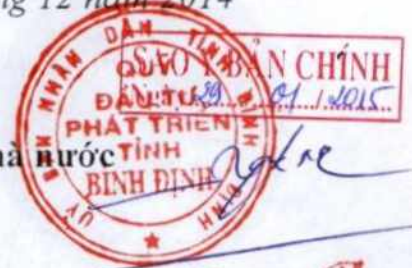 ng 12 năm 2014
SAO Y BẢN CHÍNH
29/01/2015
ỦY BAN NHÂN DÂN TỈNH BÌNH ĐỊNH
QUỸ
ĐẦU TƯ
PHÁT TRIỂN
TỈNH
BÌNH ĐỊNH
hà nước